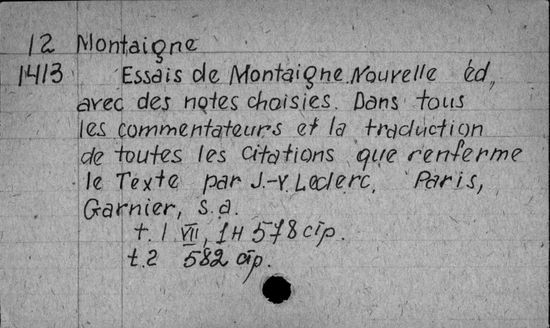 12 Montaigne
1413 Essais de Montaigne. Nouvelle éd,
avec des notes choisies. Dans tous
les commentateurs et la traduction
de toutes les citations que renferme
le Texte par J.-V. Leclerc. Paris,
Garnier, s.a.
t. 1 VII, 1н 578 стр.
t. 2 582 стр.